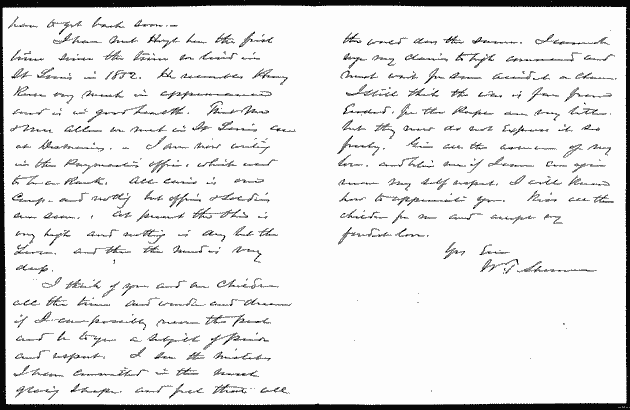 have to get back soon. —
I have met Hoyt here the first
time since the time we lived in
St Louis in 1852. He resembles Henry
very much in appearance
and is in good health.
Allen we met in St Louis are
at — I am now writing
in the Paymasters office, which used
to be a Bank. All Cairo is one
Camp. and nothing but officers & soldiers
are seen. At present the Ohio is
very high and nothing is dry but the
Levee. and then the mud is very
deep.
I think of you and our children
all the time and wonder and dream
if I can possibly the past
and be to you a subject of pride
and respect. I see the mistakes
I have committed in the most
glaring shape. and feel that all
the world does the same. I cannot
urge my claims to high command and
must wait for some accident or chance.
I still think the war is far from
Ended. for the People are very bitter
but they now do not Express it so
freely. Give all the assurance of my
love. and believe me if I can again
my self respect. I will know
how to appreciate you. Kiss all the
children for me and accept my
fondest love.
Yrs Ever
W T Sherman